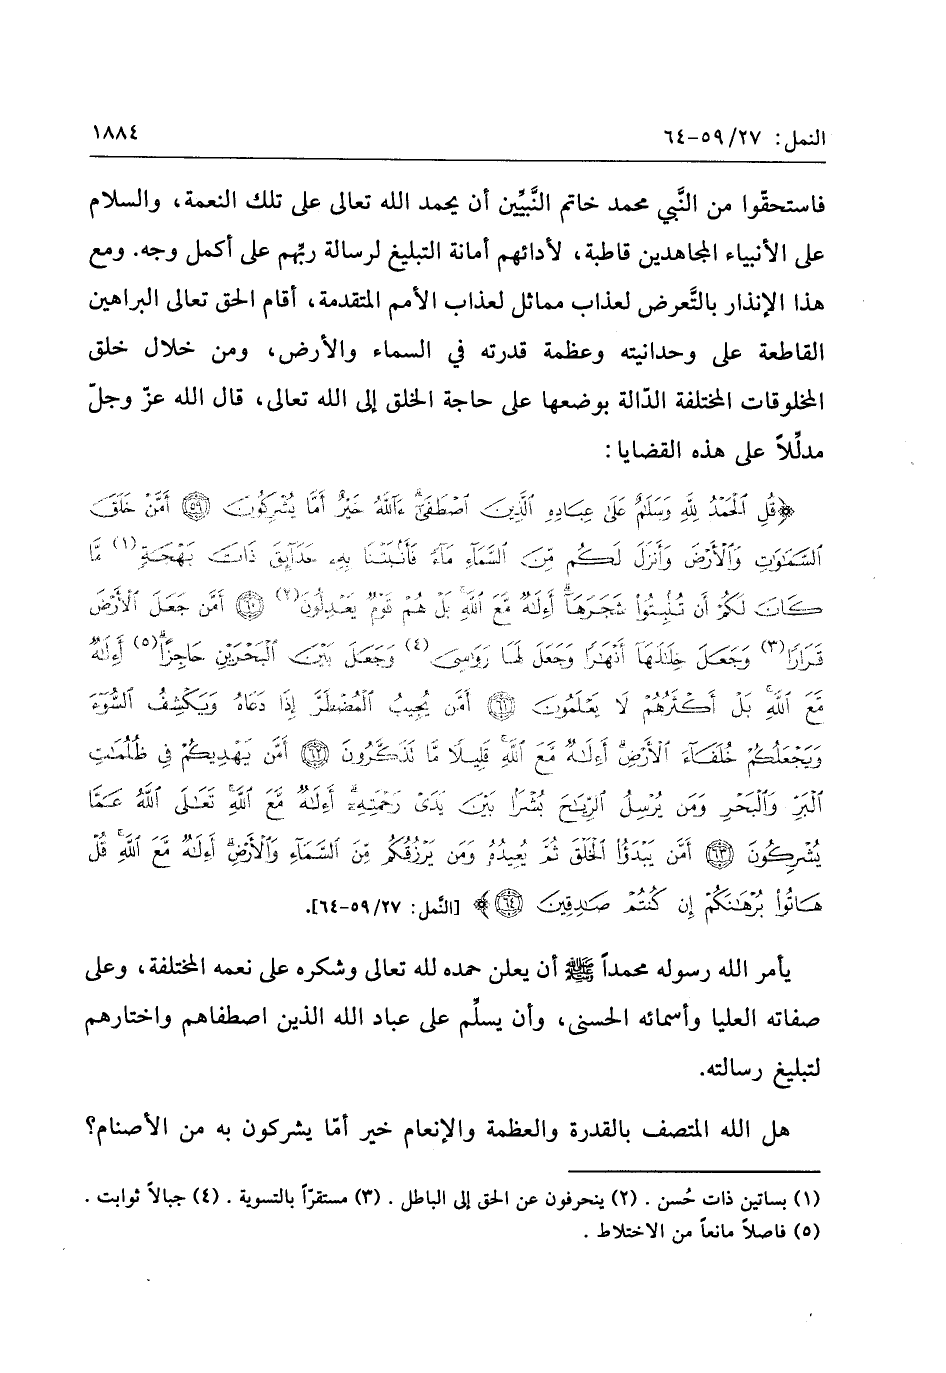 النمل: ٢٧/ ٥٩-٦٤
١٨٨٤
فاستحقّوا من النَّبي محمد خاتم النَّبيِّين أن يحمد الله تعالى على تلك النعمة، والسلام
على الأنبياء المجاهدين قاطبة، لأدائهم أمانة التبليغ لرسالة ربِّهم على أكمل وجه. ومع
هذا الإنذار بالتَّعرض لعذاب مماثل لعذاب الأمم المتقدمة، أقام الحق تعالى البراهين
القاطعة على وحدانيته وعظمة قدرته في السماء والأرض، ومن خلال خلق
المخلوقات المختلفة الدّالة بوضعها على حاجة الخلق إلى الله تعالى، قال الله عزّ وجلّ
مدلِّلاً على هذه القضايا:
﴿قُلِ ٱلْحَمْدُ لِلَّهِ وَسَلَـٰمٌ عَلَىٰ عِبَادِهِ ٱلَّذِينَ ٱصْطَفَىٰٓ ۗ ءَآللَّهُ خَيْرٌ أَمَّا يُشْرِكُونَ ٥٩ أَمَّنْ خَلَقَ
ٱلسَّمَـٰوَٰتِ وَٱلْأَرْضَ وَأَنزَلَ لَكُم مِّنَ ٱلسَّمَآءِ مَآءً فَأَنۢبَتْنَا بِهِۦ حَدَآئِقَ ذَاتَ بَهْجَةٍ(١) مَّا
كَانَ لَكُمْ أَن تُنۢبِتُوا۟ شَجَرَهَآ ۗ أَءِلَـٰهٌ مَّعَ ٱللَّهِ ۚ بَلْ هُمْ قَوْمٌ يَعْدِلُونَ(٢) ٦٠ أَمَّن جَعَلَ ٱلْأَرْضَ
قَرَارًا(٣) وَجَعَلَ خِلَـٰلَهَآ أَنْهَـٰرًا وَجَعَلَ لَهَا رَوَٰسِىَ(٤) وَجَعَلَ بَيْنَ ٱلْبَحْرَيْنِ حَاجِزًا ۗ(٥) أَءِلَـٰهٌ
مَّعَ ٱللَّهِ ۚ بَلْ أَكْثَرُهُمْ لَا يَعْلَمُونَ ٦١ أَمَّن يُجِيبُ ٱلْمُضْطَرَّ إِذَا دَعَاهُ وَيَكْشِفُ ٱلسُّوٓءَ
وَيَجْعَلُكُمْ خُلَفَآءَ ٱلْأَرْضِ ۗ أَءِلَـٰهٌ مَّعَ ٱللَّهِ ۚ قَلِيلًا مَّا تَذَكَّرُونَ ٦٢ أَمَّن يَهْدِيكُمْ فِى ظُلُمَـٰتِ
ٱلْبَرِّ وَٱلْبَحْرِ وَمَن يُرْسِلُ ٱلرِّيَـٰحَ بُشْرًۢا بَيْنَ يَدَىْ رَحْمَتِهِۦٓ ۗ أَءِلَـٰهٌ مَّعَ ٱللَّهِ ۚ تَعَـٰلَى ٱللَّهُ عَمَّا
يُشْرِكُونَ ٦٣ أَمَّن يَبْدَؤُا۟ ٱلْخَلْقَ ثُمَّ يُعِيدُهُۥ وَمَن يَرْزُقُكُم مِّنَ ٱلسَّمَآءِ وَٱلْأَرْضِ ۗ أَءِلَـٰهٌ مَّعَ ٱللَّهِ ۚ قُلْ
هَاتُوا۟ بُرْهَـٰنَكُمْ إِن كُنتُمْ صَـٰدِقِينَ ٦٤﴾ [النَّمل: ٢٧/ ٥٩-٦٤].
يأمر الله رسوله محمداً ﷺ أن يعلن حمده لله تعالى وشكره على نعمه المختلفة، وعلى
صفاته العليا وأسمائه الحسنى، وأن يسلِّم على عباد الله الذين اصطفاهم واختارهم
لتبليغ رسالته.
هل الله المتصف بالقدرة والعظمة والإنعام خير أمّا يشركون به من الأصنام؟
(١) بساتين ذات حُسن . (٢) ينحرفون عن الحق إلى الباطل . (٣) مستقرّاً بالتسوية . (٤) جبالاً ثوابت .
(٥) فاصلاً مانعاً من الاختلاط .